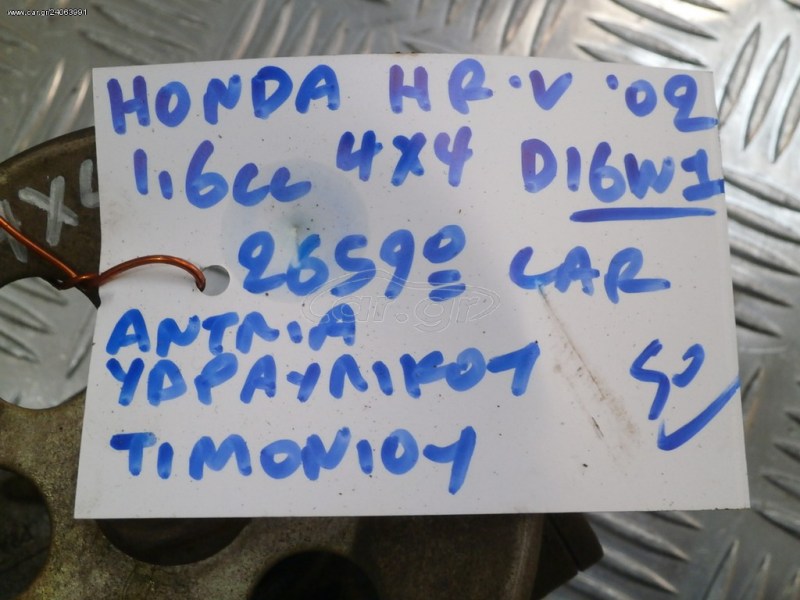 www.car.gr/24063991
HONDA HR-V '02
1,6cc 4X4 D16W1
2659º CAR
ΑΝΤΛΙΑ
ΥΔΡΑΥΛΙΚΟΥ
ΤΙΜΟΝΙΟΥ
car.gr